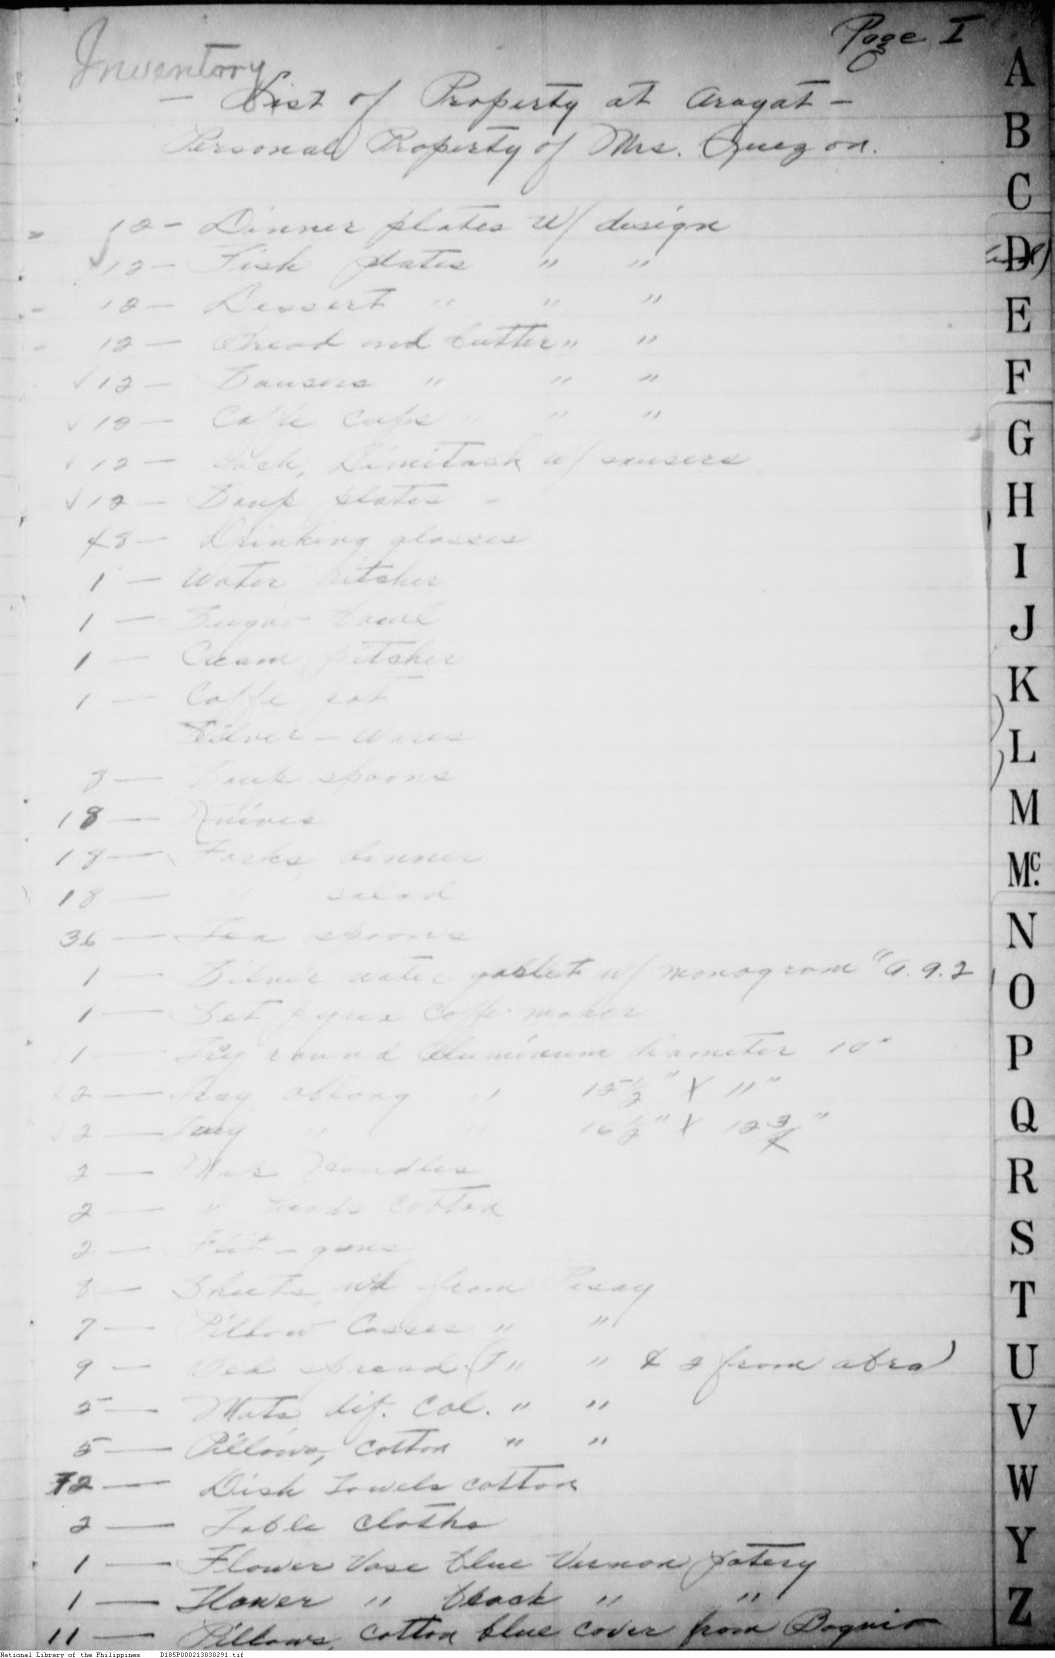 Page I
Inventory
- List of Property at Arayat -
Personal Property of Mrs. Quezon.
12 - Dinner plates w/ design
12 - Fish plates " "
12 - Dessert " " "
12 - Bread and butter " "
12 - Sausers " " "
12 - Coffe cups " " "
12 - Demitash w/ sausers
12 - Soup plates -
48 - Drinking glasses
1 - Water pitcher
1 - Sugar bowl
1 - Cream pitcher
1 - Coffe pot
Silver - wares
8 - spoons
18 - Knives
18 - Forks, dinner
18 - " salad
36 - Tea spoons
1 - Silver water goblet w/ monogram "a.q.
1 - Set pyrex Coffe maker
1 - Try round Aluminum diameter 10"
2 - Tray oblong " 15 1/2" X 11"
2 - Tray " " 16 1/2" X 12 3/4"
2 - Mop Handles
2 - " heads cotton
2 - Flit - guns
8 - Sheets, wh from Pasay
7 - Pillow Casses " "
9 - Bed spread (7 " " & 2 from abra)
5 - Mats, dif. Col. " "
5 - Pillows, cotton " "
72 - Dish Towels cotton
2 - Table cloths
1 - Flower Vase blue Vernon potery
1 - Flower " black " "
11 - Pillows, cotton blue cover from Baguio
A
B
C
D
E
F
G
H
I
J
K
L
M
Mc.
N
O
P
Q
R
S
T
U
V
W
Y
Z
National Library of the Philippines D185P000213830291.tif